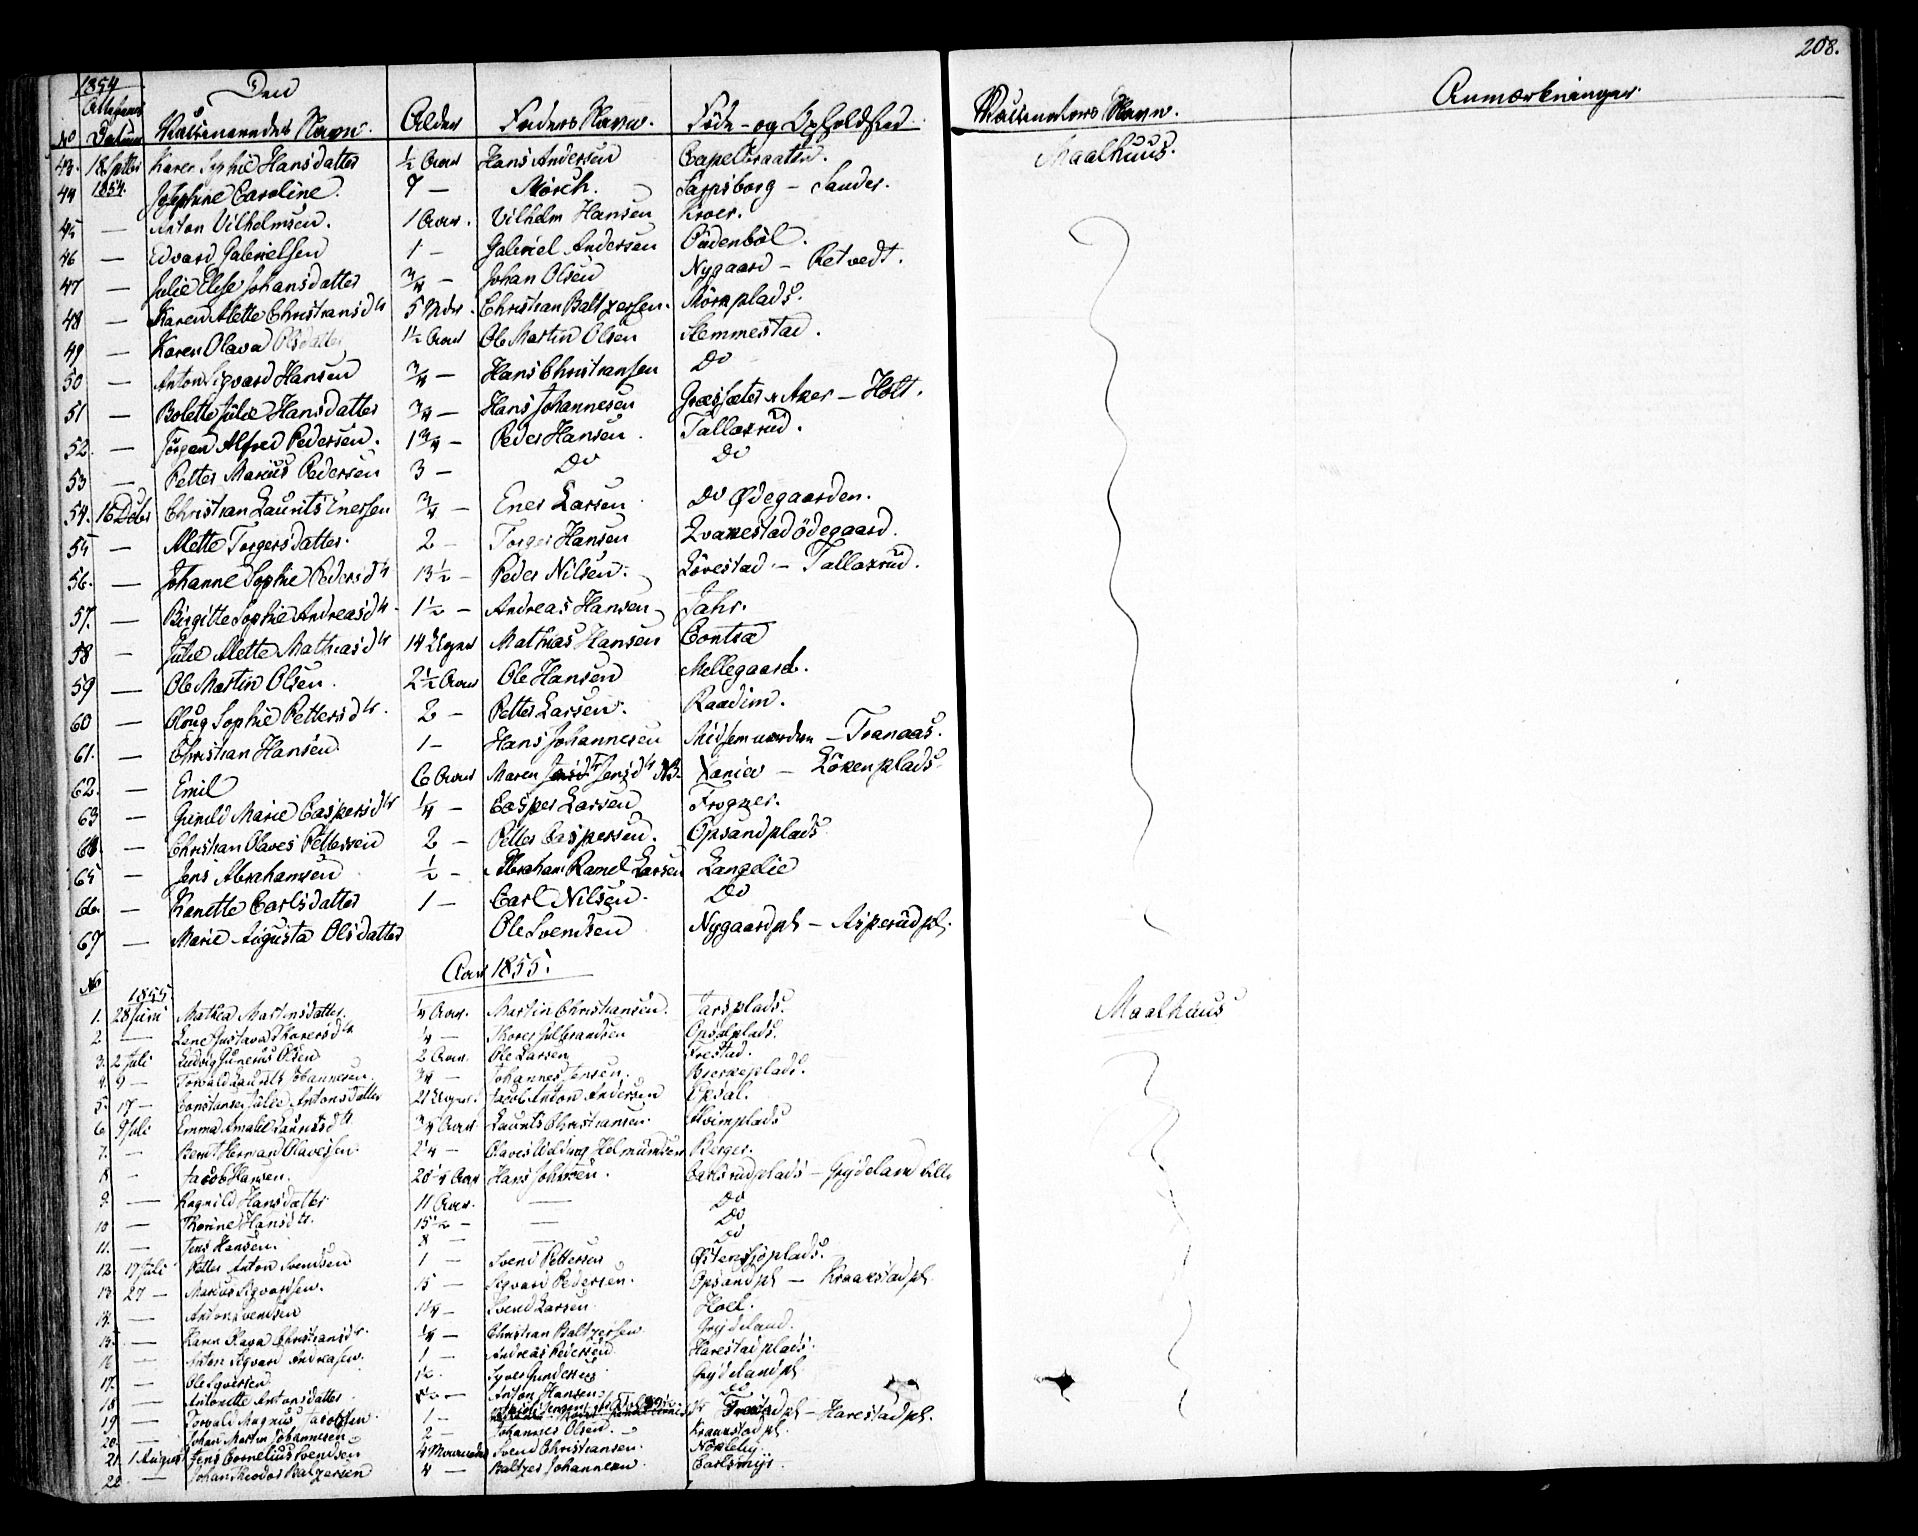 208.
1854
Attestens Den
No Datum Vaccineredes Navn. Alder Faders Navn. Føde- og Opholdsted. Vaccinateurs Navn. Anmærkninger.
43. 18 Septbr Karen Sophie Hansdatter ½ Aar Hans Andersen Capelbraaten. Maalhuus.
44 1854. Josephine Caroline. 7 — Mörch. Sarpsborg — Sander.
45 — Anton Vilhelmsen. 1 Aar. Vilhelm Hansen Kroer.
46 — Edvard Gabrielsen 1 — Gabriel Andersen
47 — Julie Elise Johansdatter ¾ — Johan Olsen Nygaard — Retvedt.
48 — Karen Mette Christiansdtr 5 Mdr. Christian Baltzersen.
49 — Karen Olava Olsdatter 1½ Aar Ole Martin Olsen Hemmestad.
50 — Anton Sigvard Hansen ¾ — Hans Christiansen Do
51 — Bolette Julie Hansdatter ¾ — Hans Johannesen Aker — Holt.
52. — Jörgen Alfred Pedersen. 1¾ — Peder Hansen. Tallaxrud.
53 — Petter Marius Pedersen 3 — Do Do
54. 16 Debr Christian Laurits Enersen ¾ — Ener Larsen Do Ødegaarden.
55 — Mette Torgersdatter. 2 — Torger Hansen Qvakestadödegaard.
56. — Johanne Sophie Pedersdtr 13½ — Peder Nilsen. Lövestad — Tallaxrud.
57. — Birgitte Sophie Andreasdtr. 1½ — Andreas Hansen Jahr.
58 — Julie Mette Mathiasdtr 14 Uger Mathias Hansen Contra
59 — Ole Martin Olsen. 2½ Aar Ole Hansen Mellegaard.
60 — Oloug Sophie Pettersdtr. 2 — Petter Larsen. Raadim.
61. — Christian Hansen. 1 — Hans Johannesen — Tranaas.
62. — Emil 6 Aar Maren Jensdtr NB. Xania — Lökenplads
63 — Gunild Marie Caspersdtr ¼ — Casper Larsen Frogner.
64 — Christian Olaves Pettersen 2 — Petter Caspersen. Opsandplads
65 — Jens Abrahamsen ½ — Abraham Ramel Larsen Langelie
66. — Hanette Carlsdatter 1 — Carl Nilsen. Do
67 — Marie Augusta Olsdatter Ole Svendsen Nygaardpl — Asperudpl.
Aar 1855.
No 1855.
1. 28 Juni Mathea Martinsdatter. ¼ Aar. Martin Christiansen. Jarsplads. Maalhuus
2 — Lene Gustava Thoresdtr ¼ — Thorer Gulbrandsen Opsalplads.
3. 2 Juli Ludvig Gunerus Olsen 2 Aar Ole Larsen Frestad.
4. 9 — Torvald Laurits Johannesen. ¾ — Johannes Jensen.
5. 17 — Constanse Julie Antonsdatter 21 Uger. Jacob Anton Andersen Opsal.
6 9 Juli Emma Amalie Lauritsdtr ¾ Aar Laurits Christiansen. Hvimplads
7. — Bernt Herman Olavesen. 2¼ — Olaves Helmundsen Berger.
8 — Jacob Hansen. 20¼ Aar Hans Carlsrudplads — Grydeland
9. — Ragnild Hansdatter 11 Aar. — Do
10 — Thorine Hansdtr. 15½ — — Do
11. — Jens Hansen. 8 — — Do
12 17 Juli Petter Anton Svendsen 1 — Svend Pettersen Østensjöplads.
13 27 — Marius Sigvardsen. 15 — Sigvard Pedersen. Opsandpl — Kraakstadpl.
14. — Anton Svendsen 1¼ — Svend Larsen Hoel.
15. — Karen Olava Christiansdr. ¼ — Christian Baltzersen. Grydeland.
16 — Anton Sigvard Andreasen. 1 — Andreas Pedersen Harestadplads.
17. — Ole Syversen 1½ Syver Gundersen Grydelandpl
18 — Antonette Antonsdatter — Anton Hansen Do
19 — Torvald Magnus Jacobsen. 1 — Frestadpl — Harestadpl.
20. — Johan Martin Johannesen. 2 — Johannes Olsen. Kraakstadpl.
21. 1 August Jens Cornelius Svendsen 4 Maaneder Svend Christiansen. Nordeby.
22. — Johan Theodor Baltzersen 4 — Baltzer Johannesen. Carlsmyr.